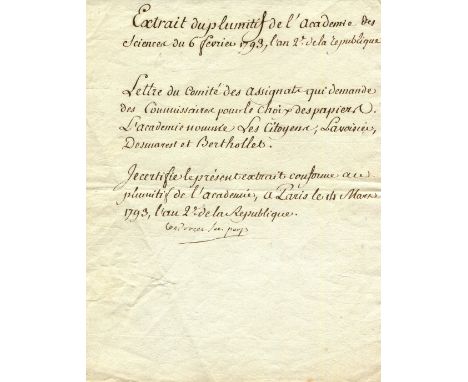 Extrait du plumitif de l'Academie des
Sciences du 6 fevrier 1793, l'an 2e. de la republique
Lettre du Comité des assignats qui demande
des Commissaires pour le choix des papiers.
L'académie nomme Les Citoyens, Lavoisier,
Desmarest et Berthollet.
Je certifie le présent extrait conforme au
plumitif de l'académie, a Paris le 14 Mars
1793, l'an 2e. de la Republique.